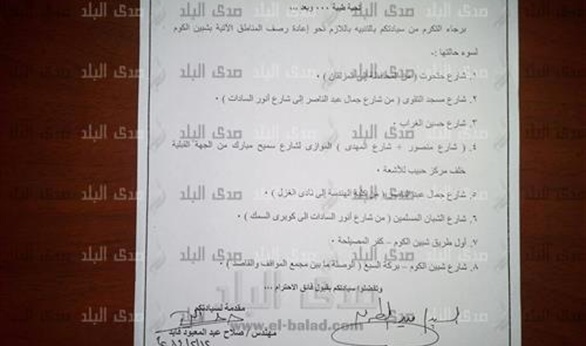 تحية طيبة ٠٠٠ وبعد ...
برجاء التكرم من سيادتكم بالتنبيه باللازم نحو إعادة رصف المناطق الآتية بشبين الكوم
لسوء حالتها :.
شارع
٢. شارع مسجد التقوى ( من شارع جمال عبد الناصر إلى شارع أنور السادات ) ٠
٣. شارع حسين الغراب ٠
٤. ( شارع منصور + شارع المهدى ) الموازى لشارع سميح مبارك من الجهة القبلية
خلف مركز حبيب للأشعة ٠
٥. شارع جمال عبد الناصر ( من كلية الهندسة إلى نادى الغزل ) ٠
٦. شارع الشبان المسلمين ( من شارع أنور السادات الى كوبرى السمك ) ٠
٧. أول طريق شبين الكوم – كفر المصيلحة ٠
٨. شارع شبين الكوم – بركة السبع ( الوصلة ما بين مجمع المواقف والقاصد ) ٠
وتفضلوا سيادتكم بقبول فائق الاحترام ...
مقدمة لسيادتكم
مهندس / صلاح عبد المعبود فايد
صدى البلد
www.el-balad.com